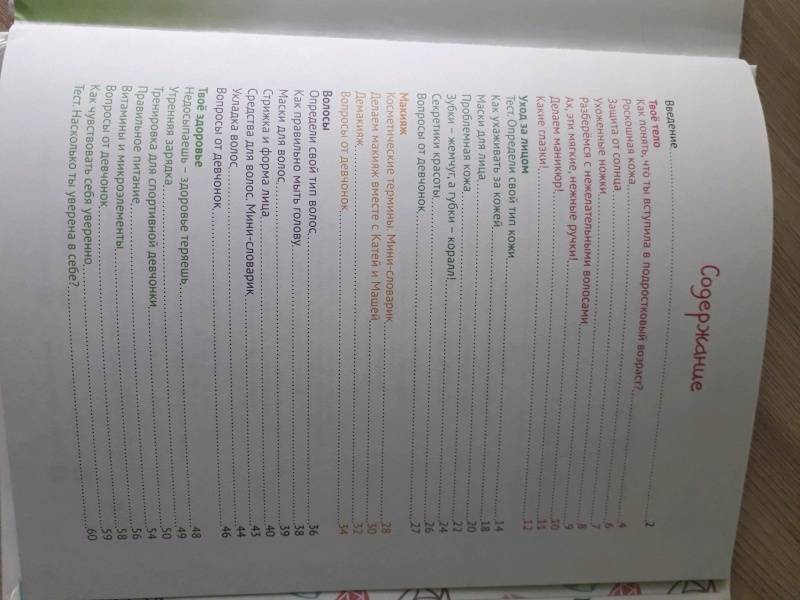 Содержание
Введение 2
Твоё тело
Как понять, что ты вступила в подростковый возраст? 4
Роскошная кожа 6
Защита от солнца 7
Ухоженные ножки 8
Разберёмся с нежелательными волосами 9
Ах, эти мягкие, нежные ручки! 10
Делаем маникюр! 11
Какие глазки! 12
Уход за лицом
Тест. Определи свой тип кожи 14
Как ухаживать за кожей 18
Маски для лица 20
Проблемная кожа 22
Зубки – жемчуг, а губки – коралл! 24
Секретики красоты 26
Вопросы от девчонок 27
Макияж
Косметические термины. Мини-словарик 28
Делаем макияж вместе с Катей и Машей 30
Демакияж 32
Вопросы от девчонок 34
Волосы
Определи свой тип волос 36
Как правильно мыть голову 38
Маски для волос 39
Стрижка и форма лица 40
Средства для волос. Мини-словарик 43
Укладка волос 44
Вопросы от девчонок 46
Твоё здоровье
Недосыпаешь – здоровье теряешь 48
Утренняя зарядка 49
Тренировка для спортивной девчонки 50
Правильное питание 54
Витамины и микроэлементы 56
Вопросы от девчонок 58
Как чувствовать себя уверенно 59
Тест. Насколько ты уверена в себе? 60